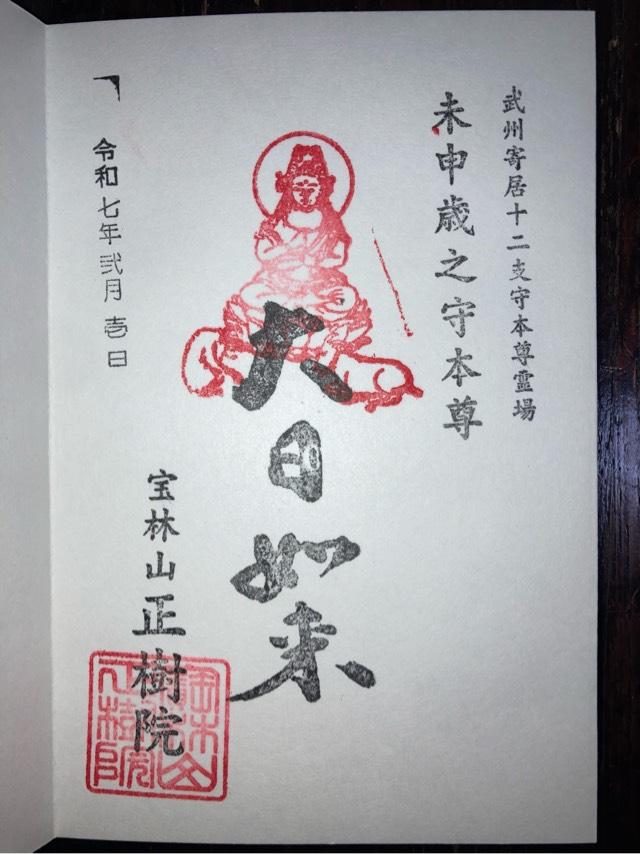 武州寄居十二支守本尊霊場
未申歳之守本尊
大日如来
令和七年弐月壱日
宝林山正樹院